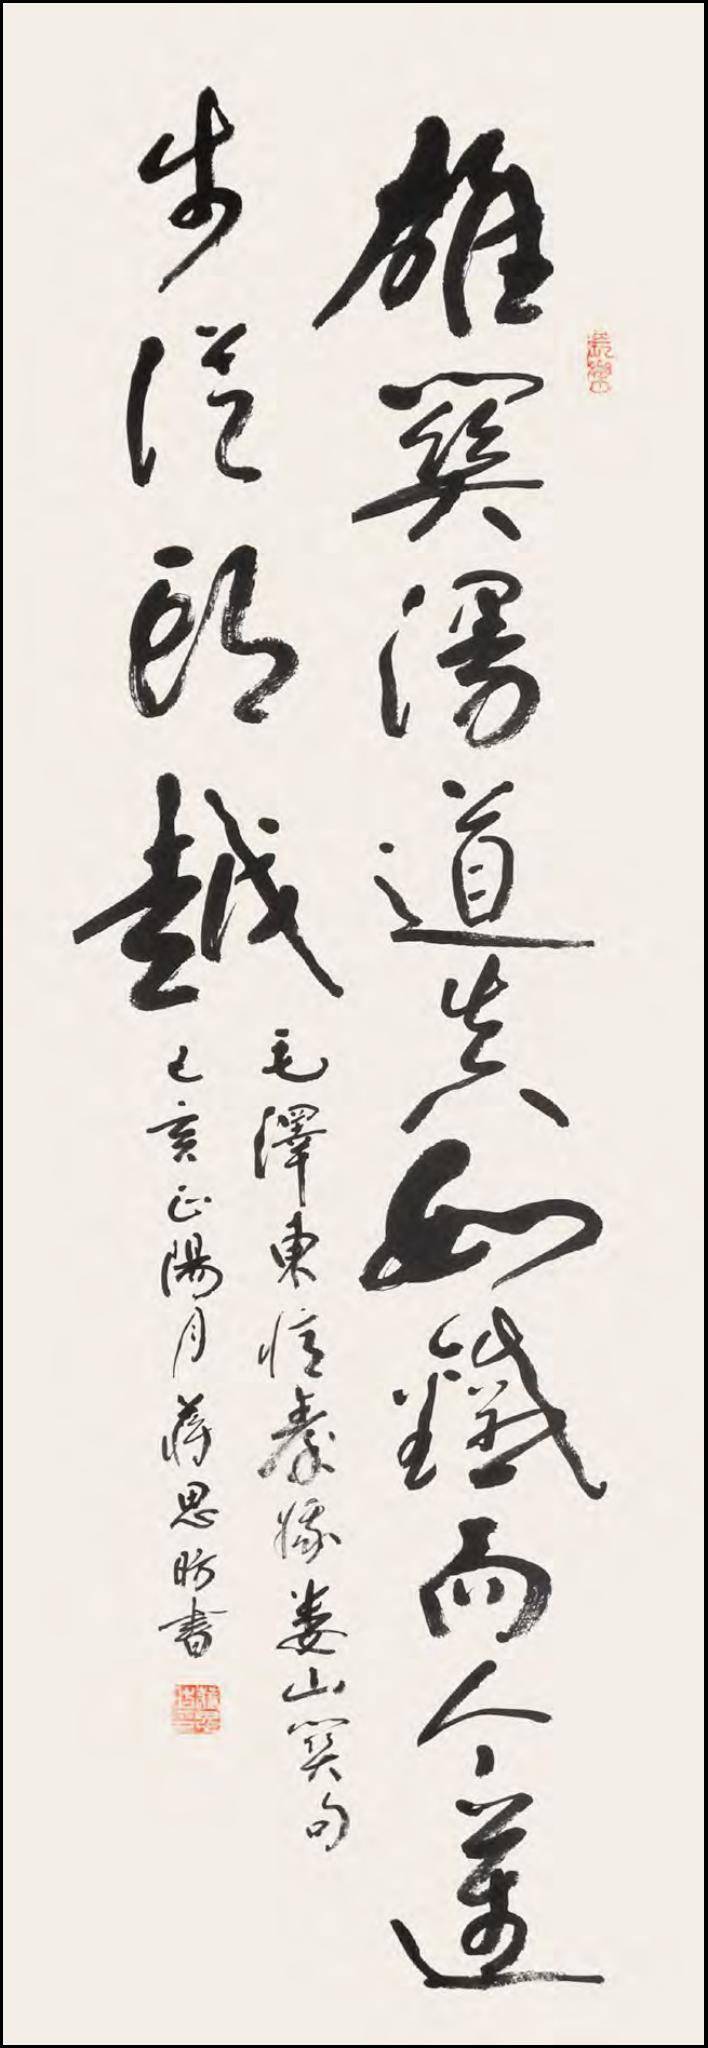 雄關漫道真如鐵而今邁
步從頭越
毛澤東憶秦娥婁山關句
己亥正陽月蔣思昉書